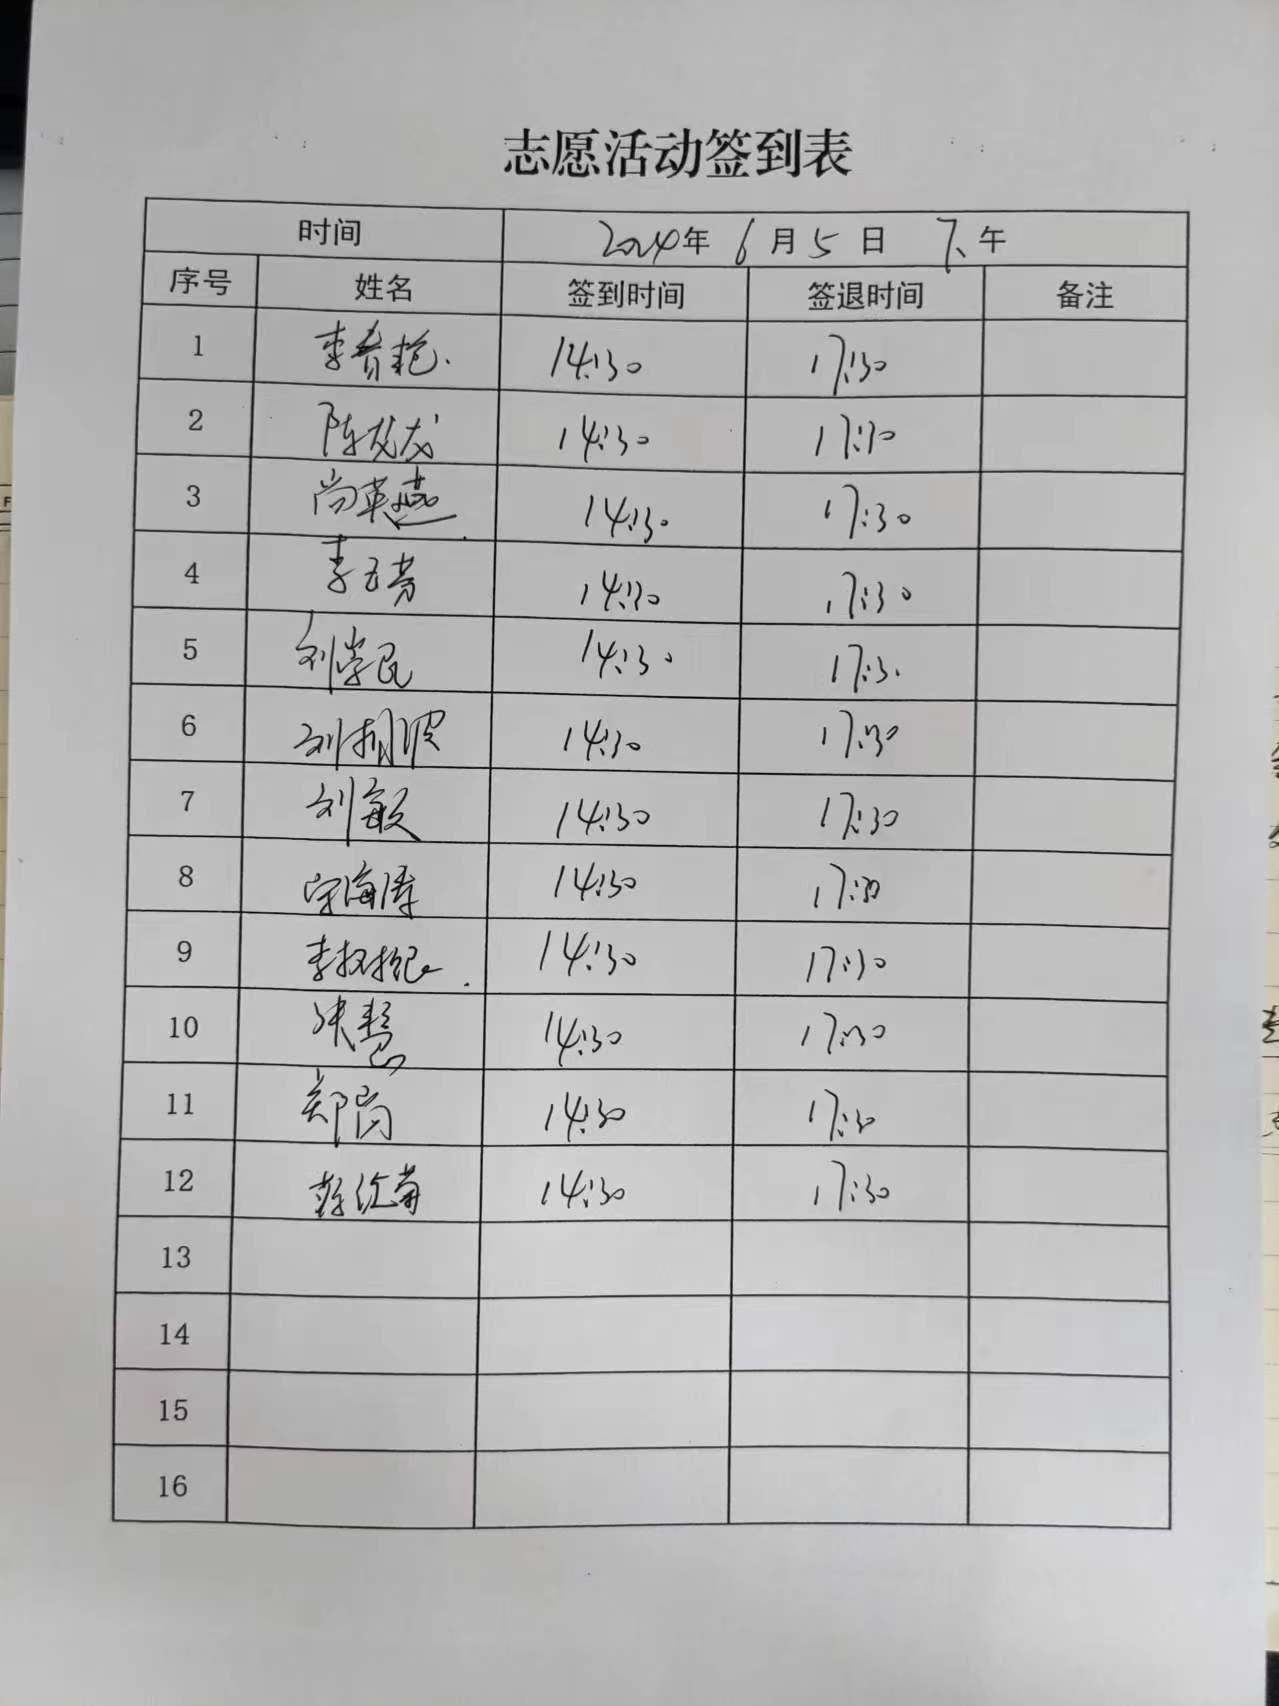 志愿活动签到表
时间 2024年 6月5日 下午
序号 姓名 签到时间 签退时间 备注
1 李春艳 14:30 17:30
2 陈龙龙 14:30 17:30
3 尚英燕 14:30 17:30
4 李玉芳 14:30 17:30
5 刘学民 14:30 17:30
6 刘 波 14:30 17:30
7 刘敏 14:30 17:30
8 海涛 14:30 17:30
9 李 14:30 17:30
10 张慧 14:30 17:30
11 郑 14:30 17:30
12 14:30 17:30
13
14
15
16